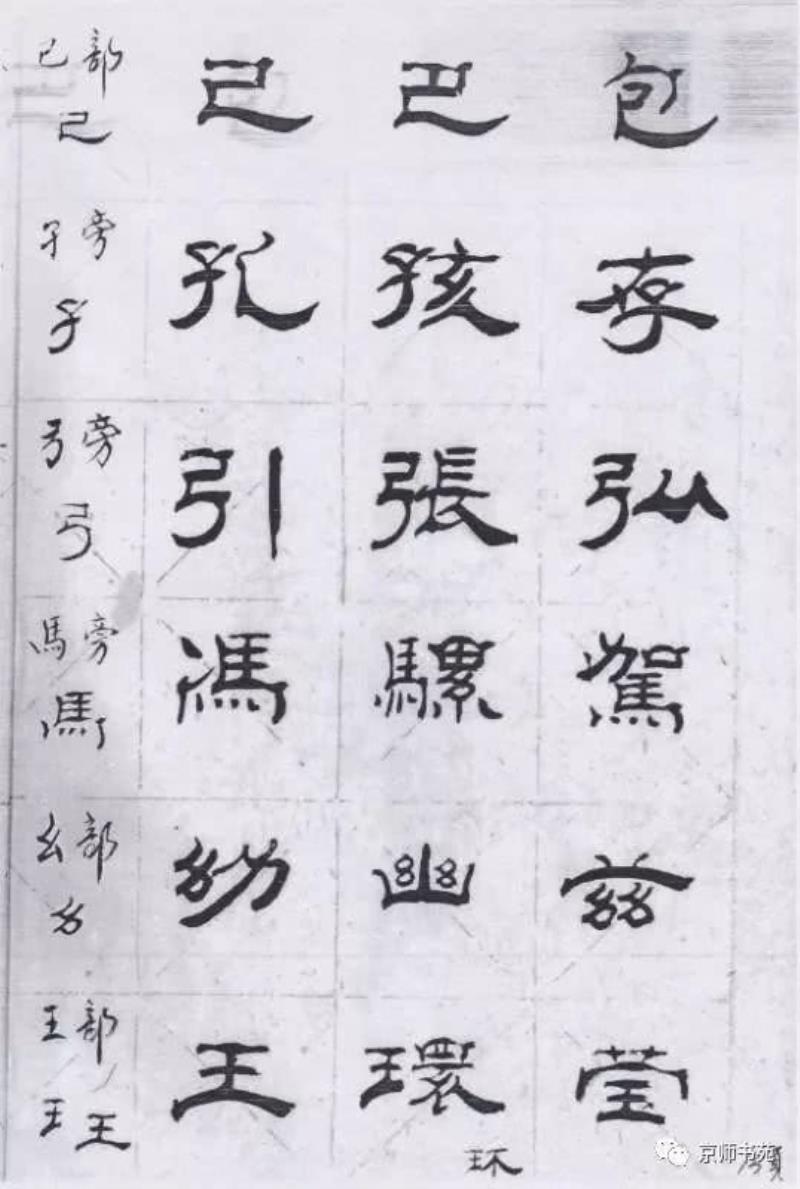 已部 己 己 巴 包
子旁 子 孔 孩 存
弓旁 弓 引 張 弘
馬旁 馬 馮 騾 駕
幺部 幺 幼 幽 兹
王部 王 王 王 環 莹
环
京师书苑